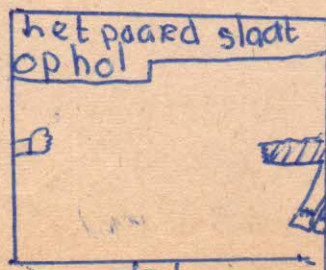 het paard slaat
op hol